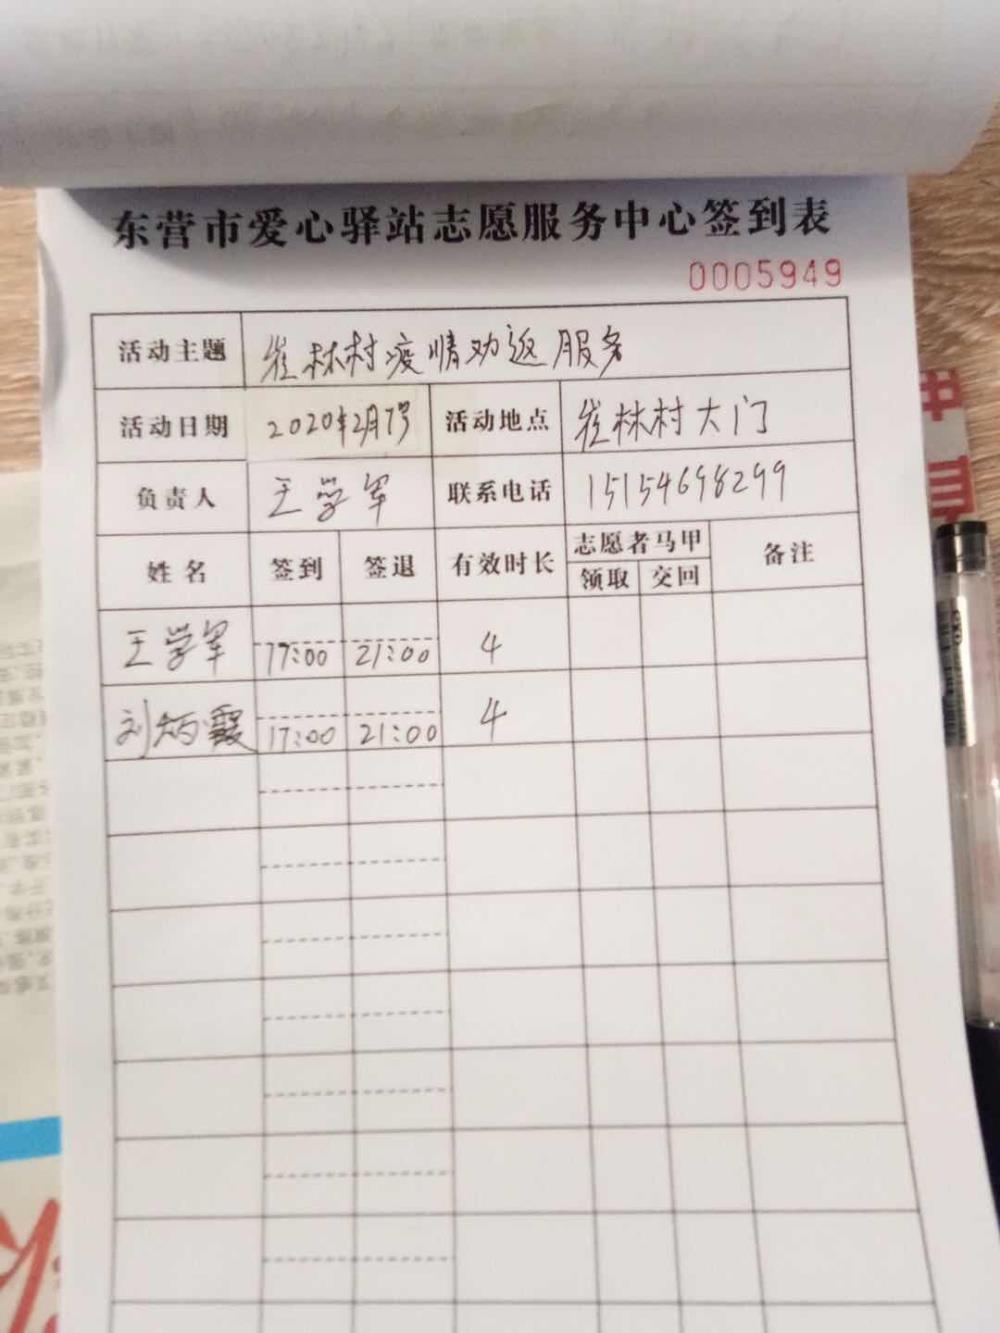 东营市爱心驿站志愿服务中心签到表
0005949
活动主题 崔林村疫情劝返服务
活动日期 2020年2月7号 活动地点 崔林村大门
负责人 王学军 联系电话 15154698299
姓名 签到 签退 有效时长 志愿者马甲 备注
领取 交回
王学军 17:00 21:00 4
刘炳霞 17:00 21:00 4